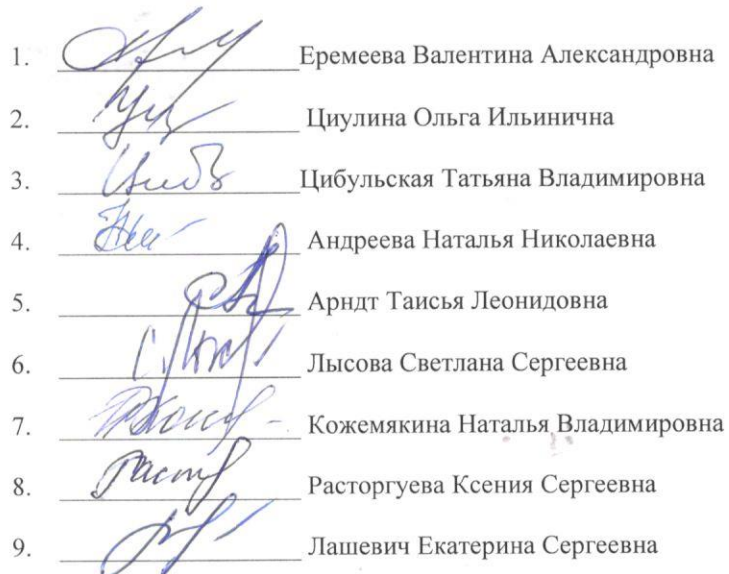 1. Еремеева Валентина Александровна
2. Циулина Ольга Ильинична
3. Цибульская Татьяна Владимировна
4. Андреева Наталья Николаевна
5. Арндт Таисья Леонидовна
6. Лысова Светлана Сергеевна
7. Кожемякина Наталья Владимировна
8. Расторгуева Ксения Сергеевна
9. Лашевич Екатерина Сергеевна